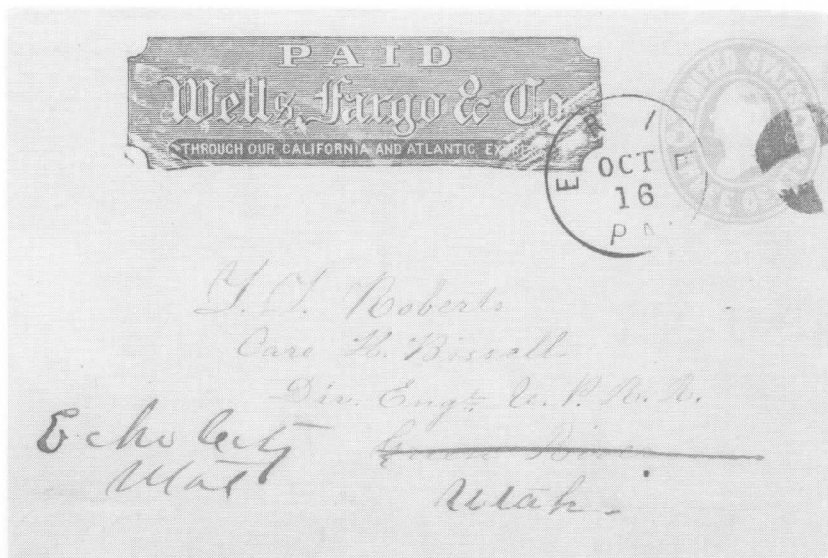 PAID
Wells, Fargo & Co.
THROUGH OUR CALIFORNIA AND ATLANTIC EXPRESS
UNITED STATES
ERIE
OCT
16
PA.
Roberts
Care H. Bissell
Div. Engr. U. P. R. R.
Green River
Echo City
Utah
Utah.